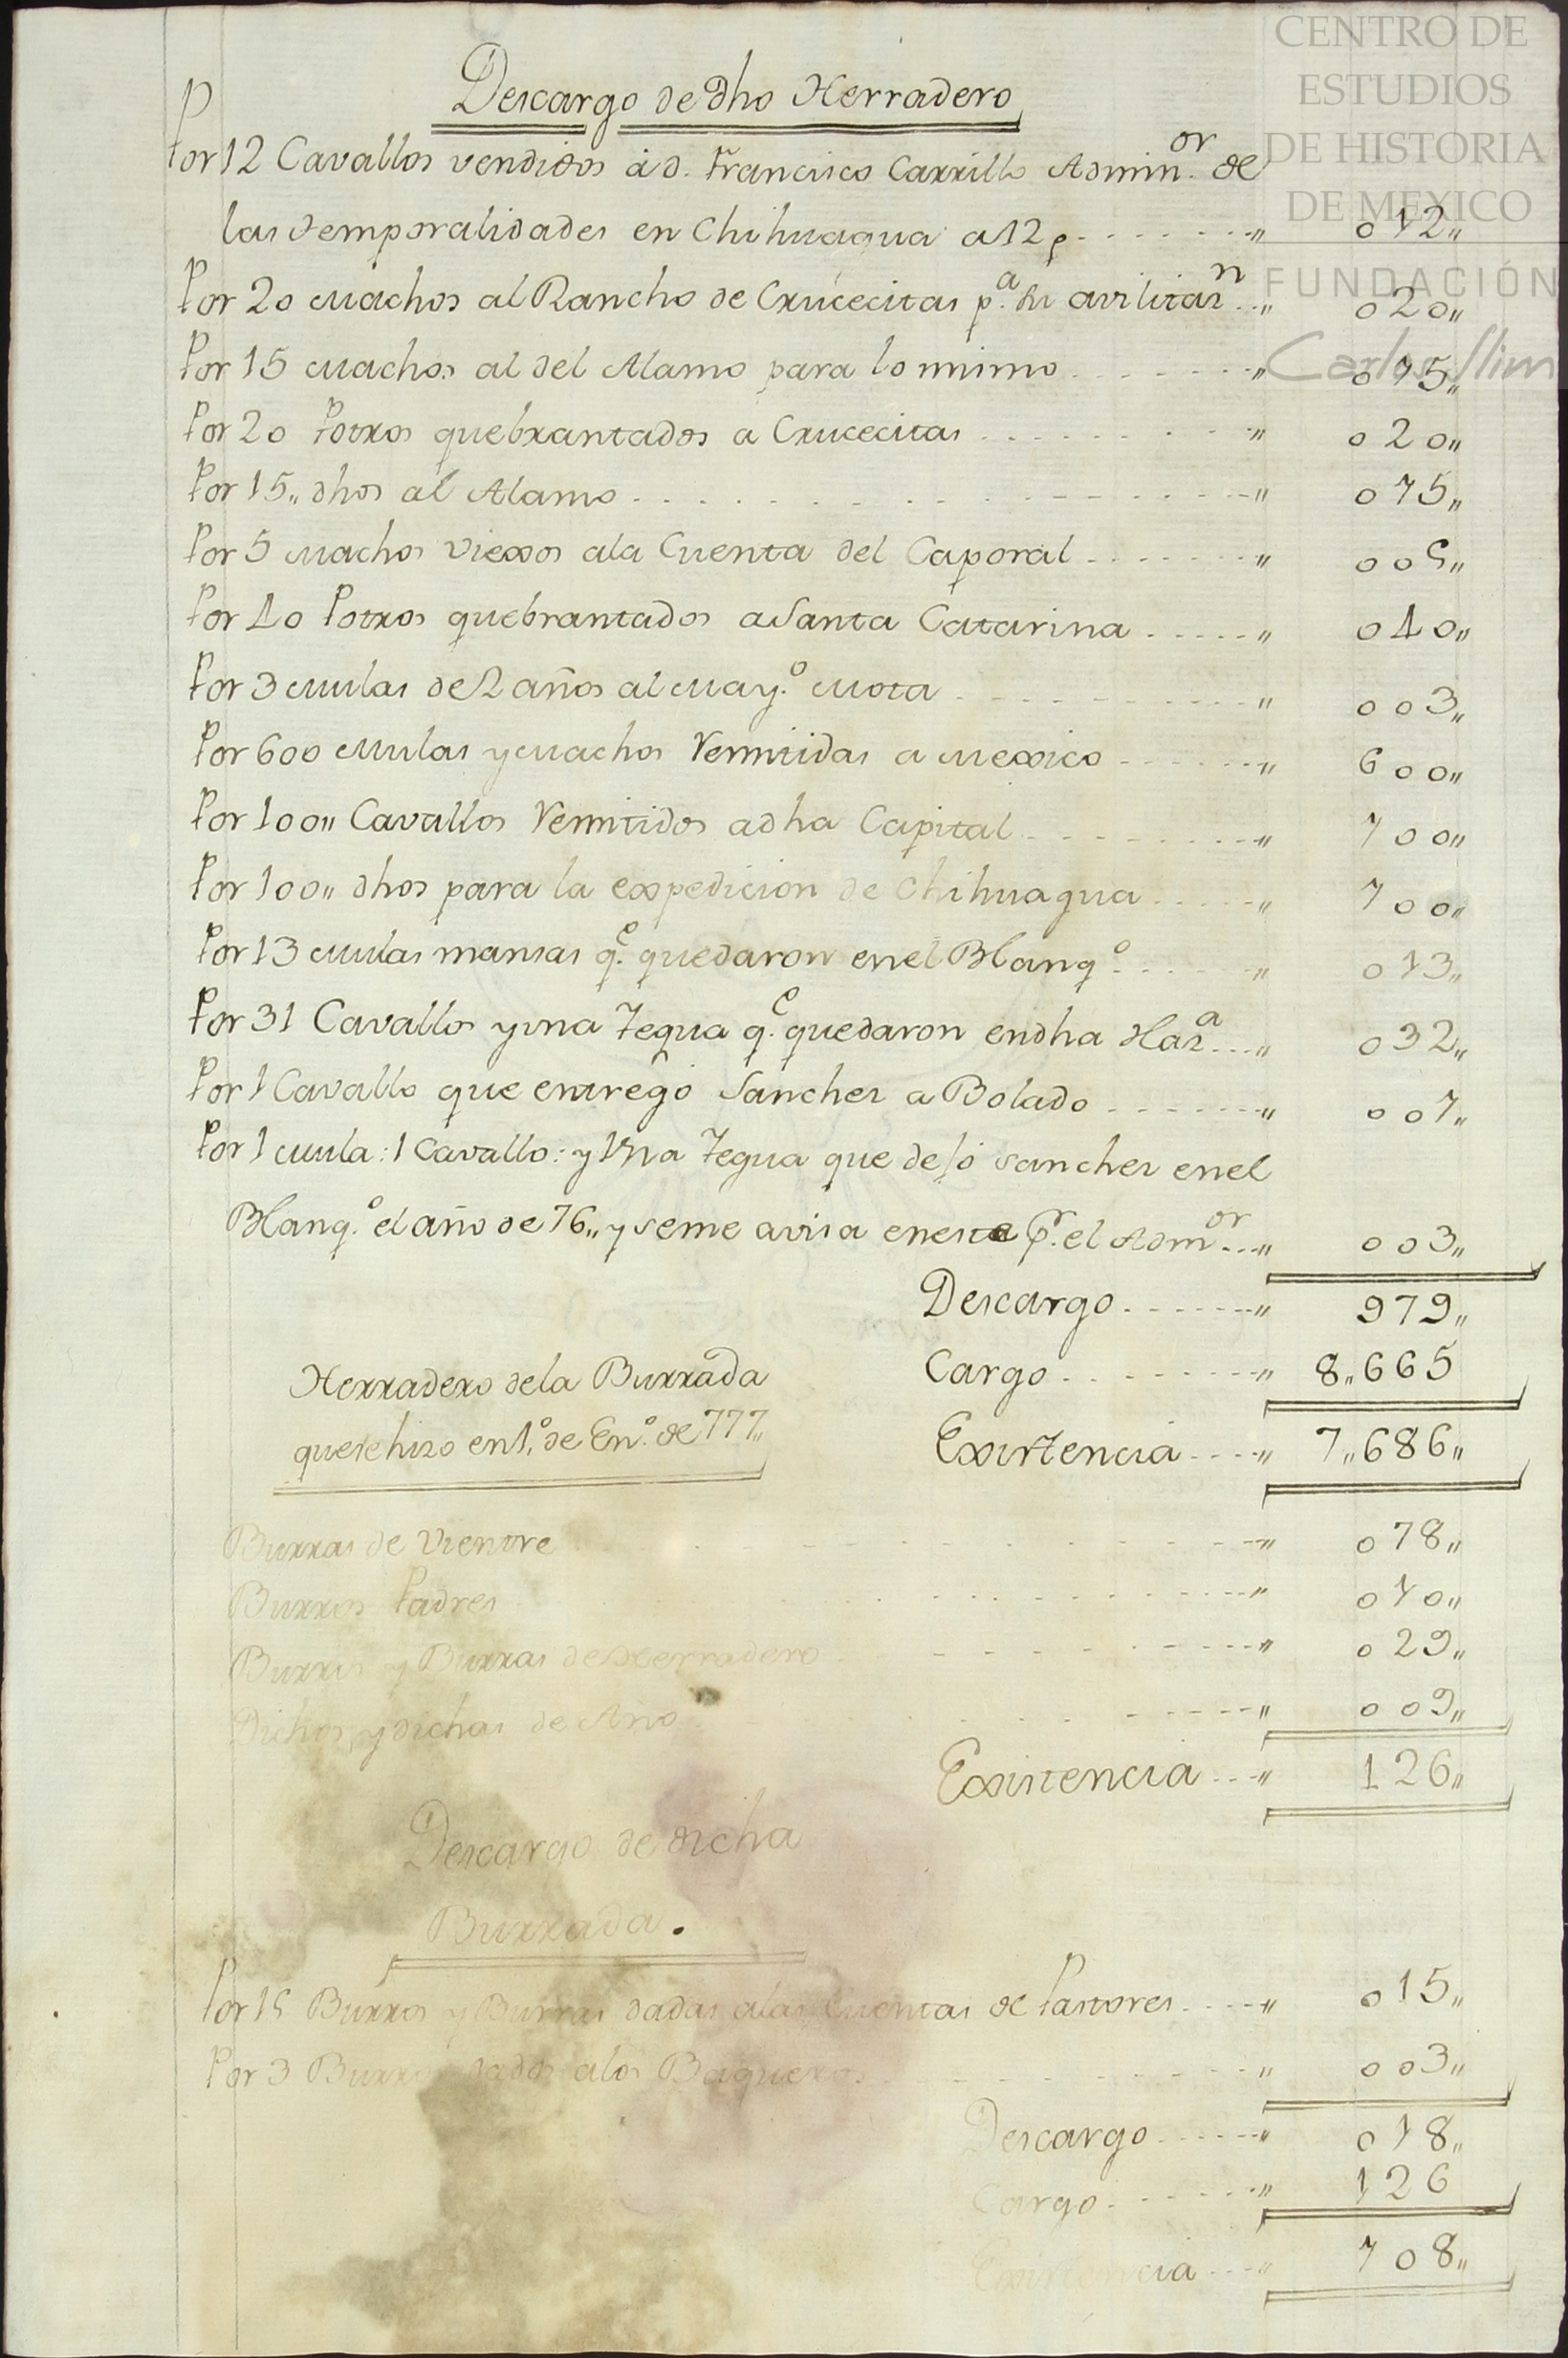 CENTRO DE
ESTUDIOS
DE HISTORIA
DE MEXICO
FUNDACIÓN
Carlos Slim
Descargo de dho Herradero
Por 12 Cavallos vendidos à d. Francisco Carrillo Admin.or de
las temporalidades en Chihuagua a 12 p - - - - - - - " 012"
Por 20 Machos al Rancho de Crucecitas p.a su avilitaz.n - - " 020"
Por 15 Machos al del Alamo para lo mismo - - - - - - - " 015"
Por 20 Potros quebrantados a Crucecitas - - - - - - - - - " 020"
Por 15" dhos al Alamo - - - - - - - - - - - - - - " 015"
Por 5 Machos viexos ala Cuenta del Caporal - - - - - - - " 005"
Por 40 Potros quebrantados a Santa Catarina - - - - - " 040"
Por 3 Mulas de 2 años al May.o Mota - - - - - - - - - - " 003"
Por 600 Mulas y Machos Remitidas a Mexico - - - - - - " 600"
Por 100" Cavallos Remitidos adha Capital - - - - - - - - " 100"
Por 100" dhos para la expedicion de Chihuagua - - - - - " 100"
Por 13 Mulas mansas q.e quedaron enel Blanq.o - - - - - " 013"
Por 31 Cavallos y una Yegua q.e quedaron endha Haz.a - - - " 032"
Por 1 Cavallo que entregó Sanchez a Bolado - - - - - - - " 001"
Por 1 Mula: 1 Cavallo: y Una Yegua que dejó Sanchez enel
Blanq.o el año de 76" y seme avisa enesta p.r el Adm.or - - " 003"
Descargo - - - - - - - " 979"
Cargo - - - - - - - - " 8"665
Herradero dela Burrada
quese hizo en 1.o de En.o de 777"
Existencia - - - - " 7"686"
Burras de Vientre - - - - - - - - - - - " 078"
Burros Padres - - - - - - - - - - - " 010"
Burros y Burras de Herradero - - - - - - - - - " 029"
Dichos, y dichas de Año - - - - - - - - - " 009"
Existencia - - - " 126"
Descargo de dicha
Burrada.
Por 15 Burros y Burras dadas alas Cuentas de Pastores - - - - " 015"
Por 3 Burros dados alos Baqueros - - - - - - - - - " 003"
Descargo - - - - - - " 018"
Cargo - - - - - - - " 126
Existencia - - - " 108"